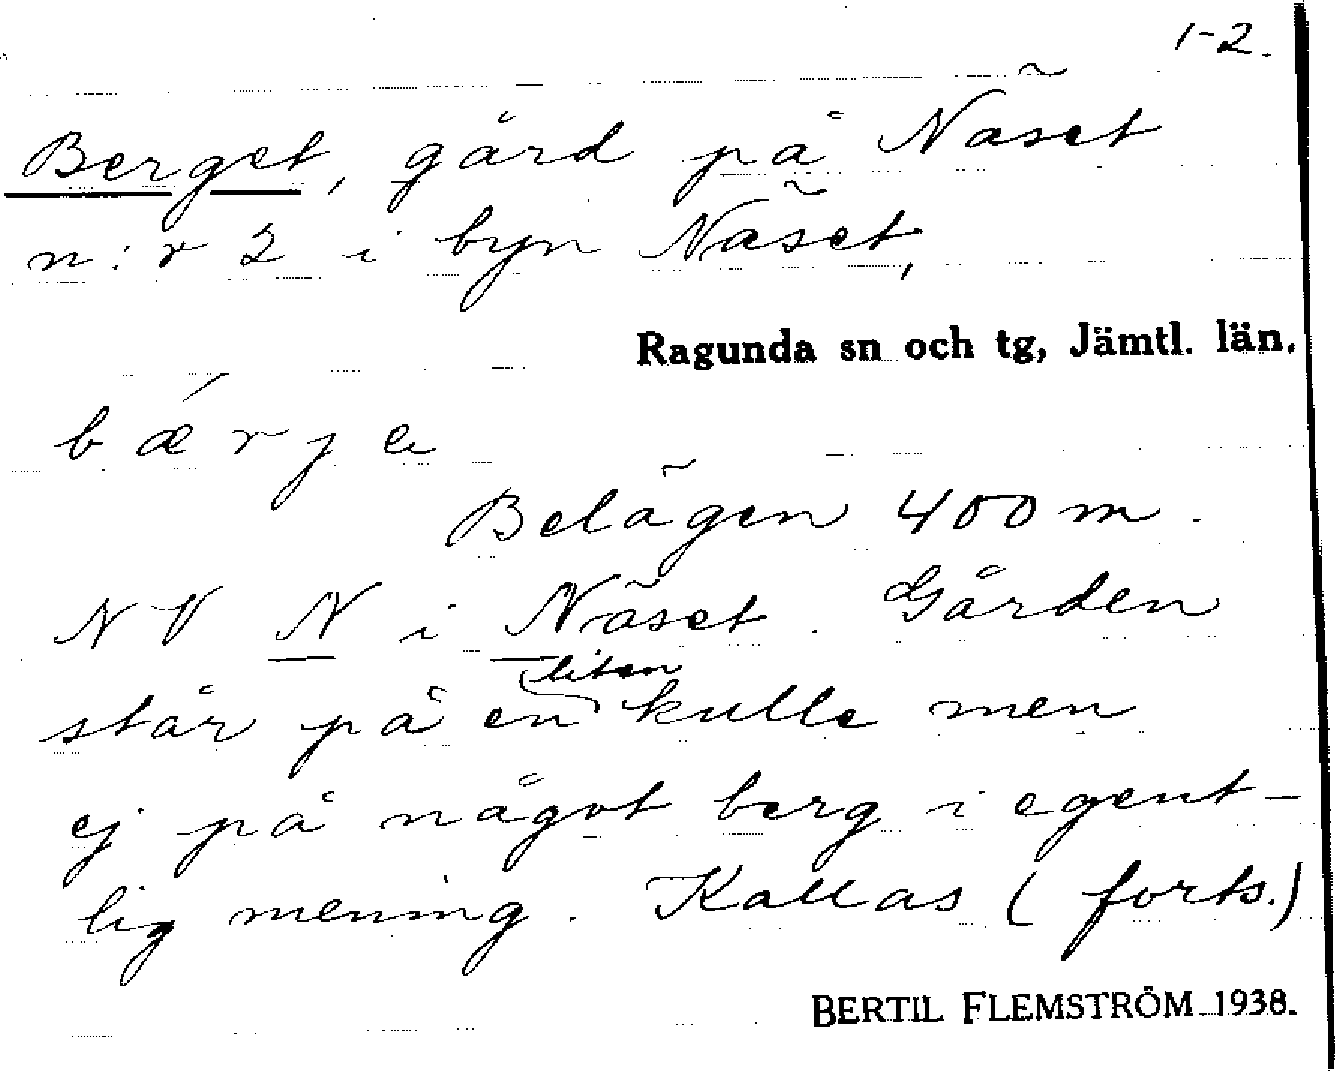 1-2.
Berget, gård på Näset
n:r 2 i byn Näset,
Ragunda sn och tg, Jämtl. län.
bǽrje
Belägen 400 m.
NV N i Näset. Gården
står på en liten kulle men
ej på något berg i egent-
lig mening. Kallas (forts.)
BERTIL FLEMSTRÖM 1938.